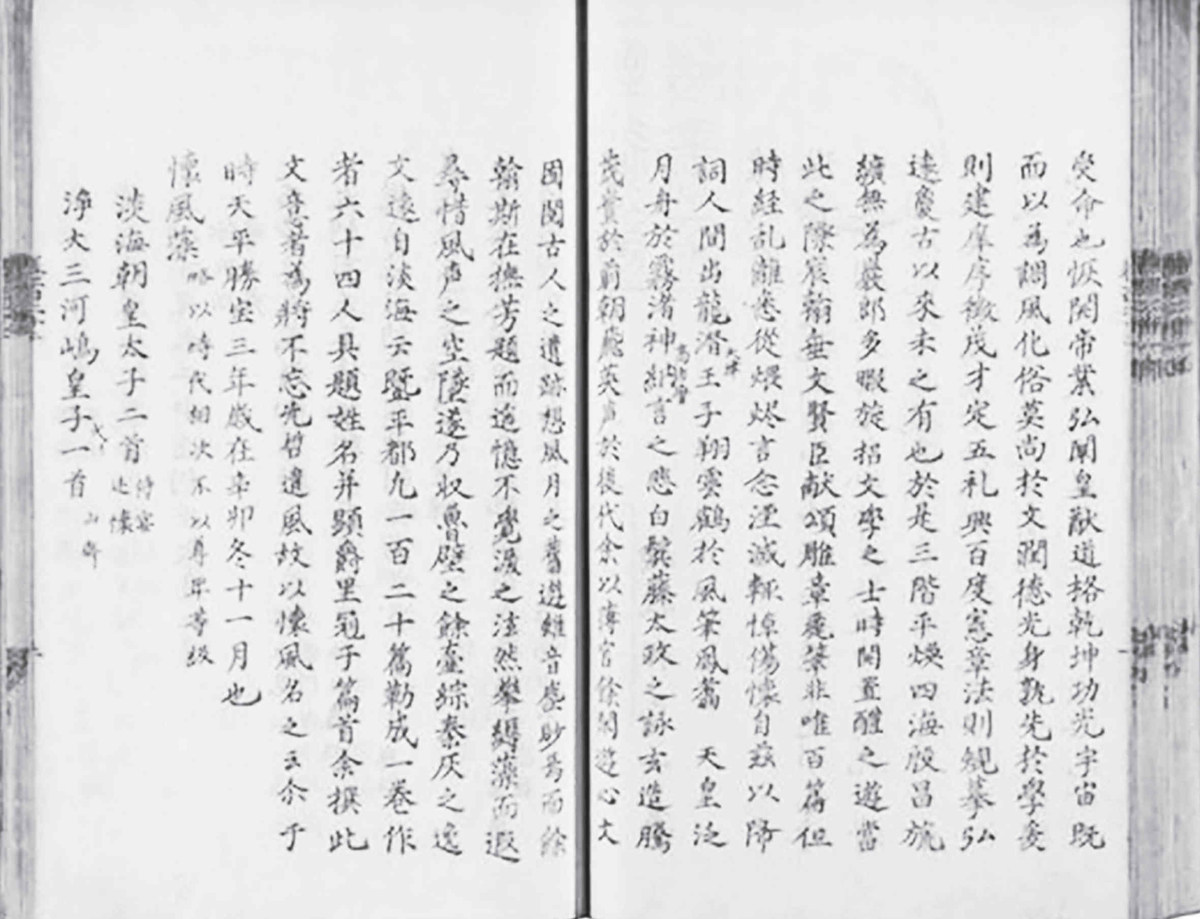 受命也恢開帝業弘闡皇猷道格乾坤功光宇宙既
而以為調風化俗莫尚於文潤徳光身孰先於學爰
則建庠序徴茂才定五礼興百度憲章法則規摹弘
遠夐古以来未之有也於是三階平煥四海殷昌旒
纊無為巌郎多暇旋招文學之士時開置醴之遊當
此之際宸翰垂文賢臣献頌雕章麗筆非唯百篇但
時経乱離悉従煨烬言念湮滅輙悼傷懐自茲以降
詞人間出龍潜王子翔雲鶴於風筆鳳翥 天皇泛
大津
月舟於霧渚神納言之悲白鬢藤太政之詠玄造騰
高市麿
茂實於前朝飛英声於後代余以薄官餘閑遊心文
囿閲古人之遺跡想風月之舊遊雖音塵眇焉而餘
翰斯在撫芳題而遥憶不覺涙之泫然攀縟藻而遐
尋惜風声之空墜遂乃収魯壁之餘蠹綜秦灰之逸
文遠自淡海云曁平都凢一百二十篇勒成一巻作
者六十四人具題姓名并顕爵里冠于篇首余撰此
文意者為将不忘先哲遺風故以懐風名之云尓于
時天平勝宝三年歳在辛卯冬十一月也
懐風藻 略以時代相次不以尊卑等級
淡海朝皇太子二首 侍宴 述懐
浄大三河嶋皇子一首 山齋